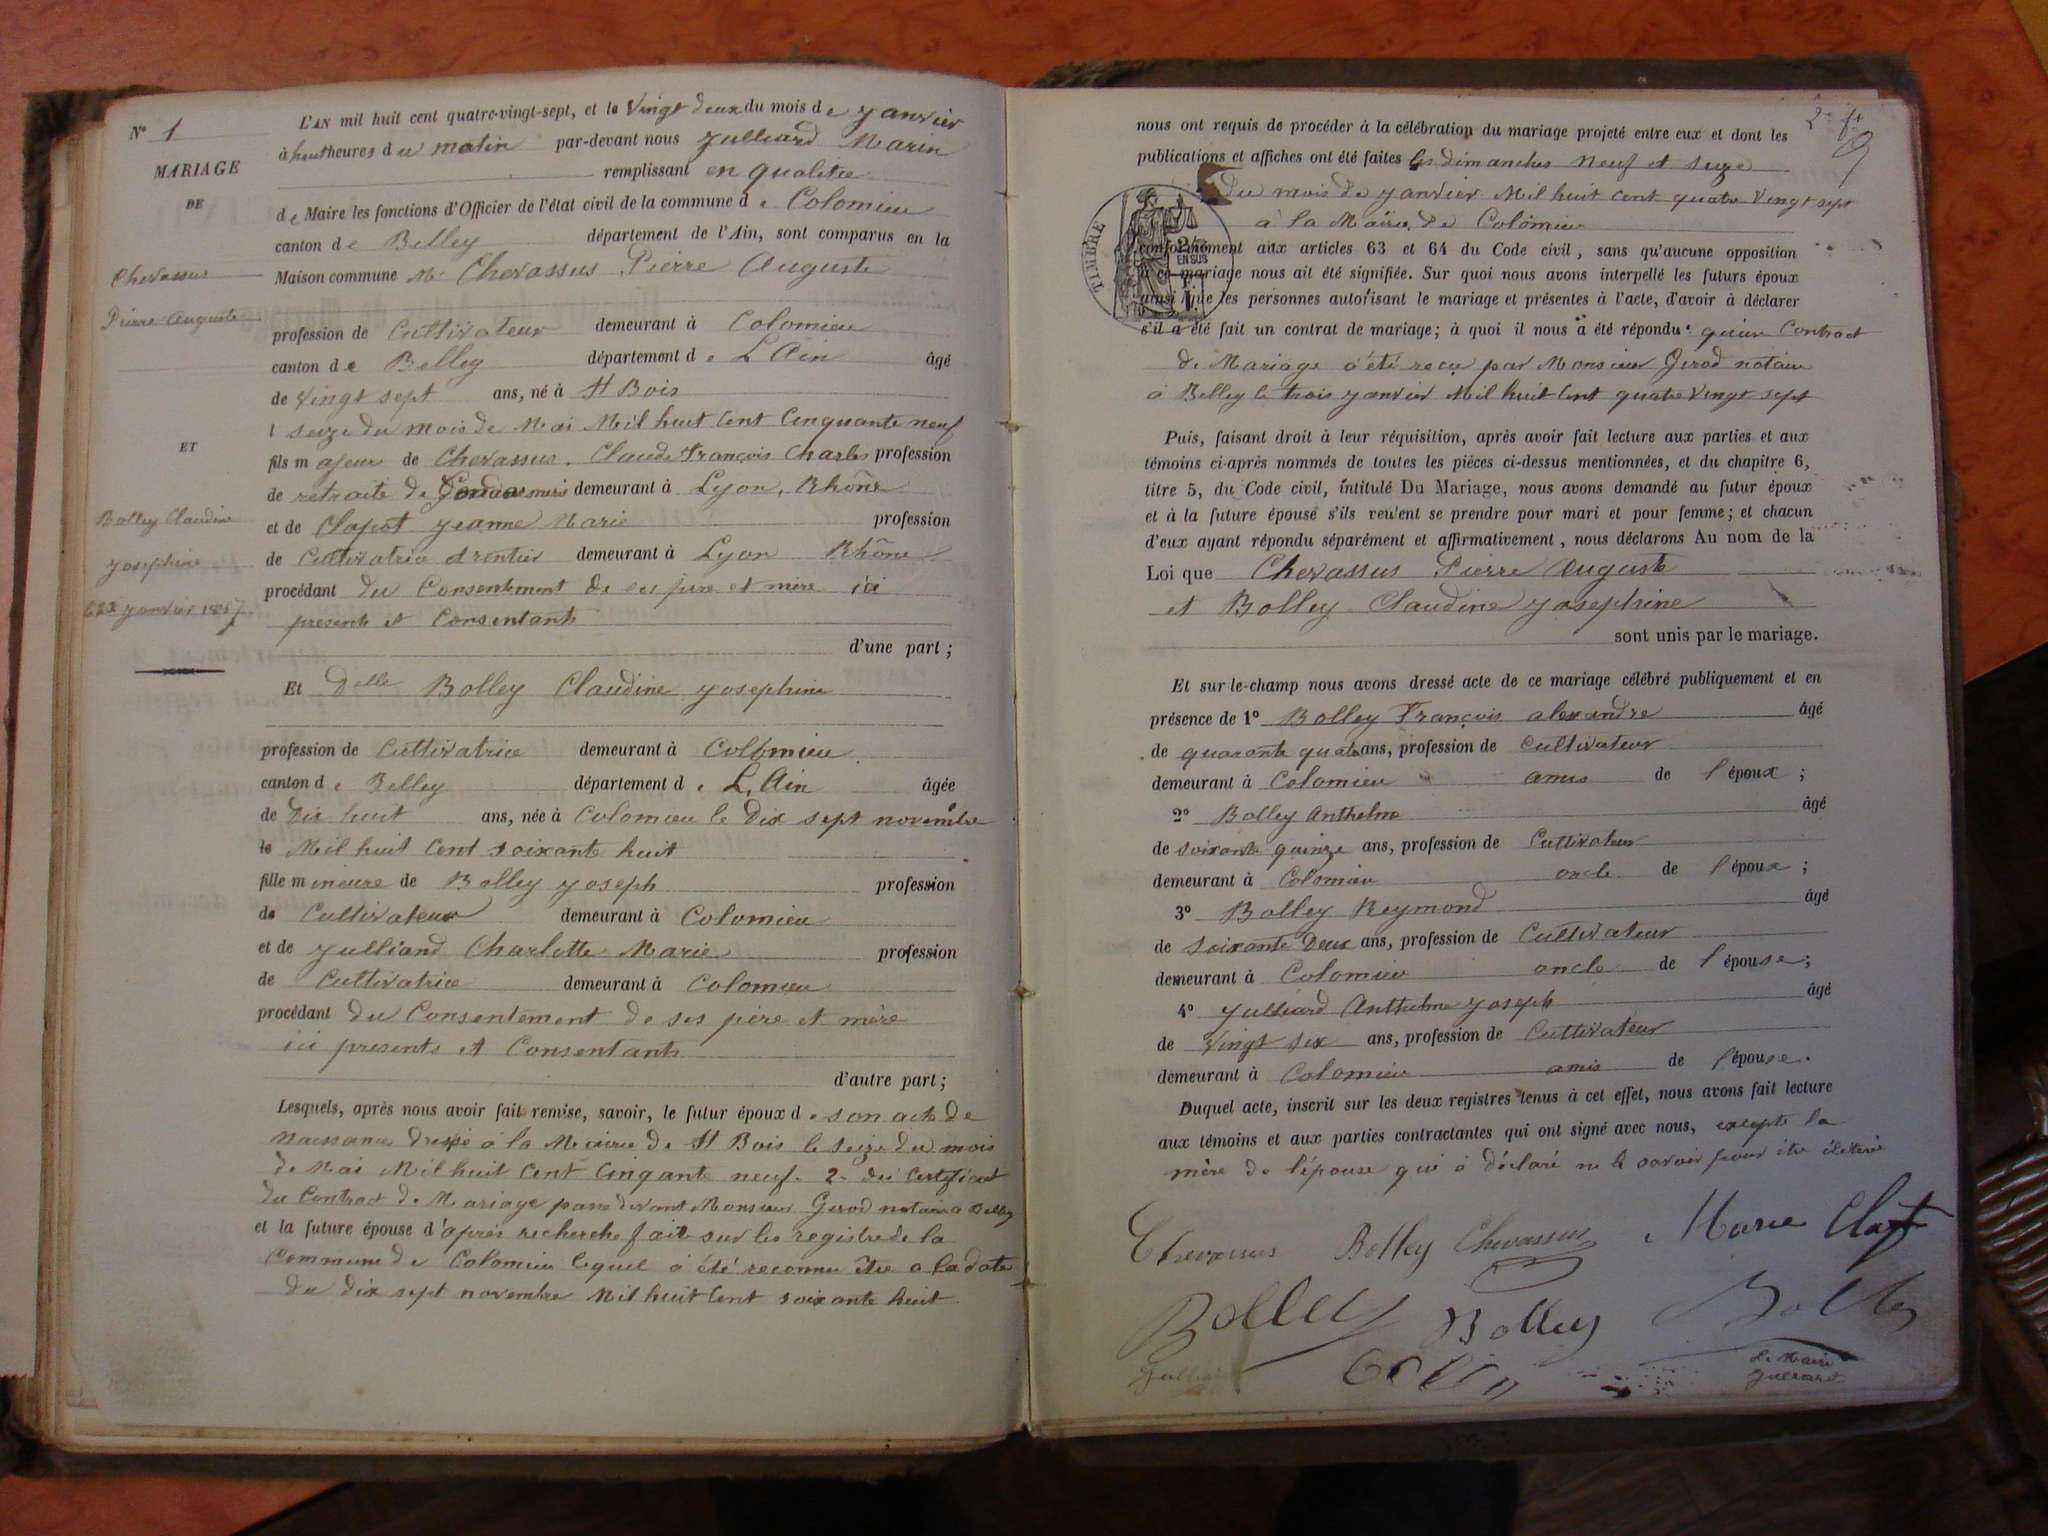 N° 1
MARIAGE
DE
Chevassus
Pierre Auguste
ET
Bolley Claudine
Josephine
22 janvier 1887
L'AN mil huit cent quatre-vingt-sept, et le Vingt deux du mois de Janvier
à huit heures du matin par-devant nous Julliard Marin
remplissant en qualitée
de Maire les fonctions d'Officier de l'état civil de la commune de Colomieu
canton de Belley département de l'Ain, sont comparus en la
Maison commune Mr Chevassus Pierre Auguste
profession de Cultivateur demeurant à Colomieu
canton de Belley département de L'Ain âgé
de Vingt sept ans, né à St Bois
l seize du mois de Mai Mil huit Cent Cinquante neuf
fils majeur de Chevassus. Claude François Charles profession
de retraité de demeurant à Lyon, Rhône
et de Clapot Jeanne Marie profession
de Cultivatrice et rentier demeurant à Lyon Rhône
procédant du Consentement de ses père et mère ici
presents et Consentants
d'une part ;
Et Delle Bolley Claudine Josephine
profession de Cultivatrice demeurant à Colomieu
canton de Belley département de L'Ain âgée
de Dix huit ans, née à Colomieu le Dix sept novembre
le Mil huit Cent soixante huit
fille mineure de Bolley Joseph profession
de Cultivateur demeurant à Colomieu
et de Julliand Charlotte Marie profession
de Cultivatrice demeurant à Colomieu
procédant du Consentement de ses père et mère
ici presents et Consentants
d'autre part ;
Lesquels, après nous avoir fait remise, savoir, le futur époux de son acte de
naissance dressé à la Mairie de St Bois le seize du mois
de Mai Mil huit Cent Cinqante neuf. 2. du Certificat
du Contract de Mariage passé devant Monsieur Girod notaire a Belley
et la future épouse d'après recherche fait sur les registre de la
Commune de Colomieu lequel a été reconnu être a la date
du dix sept novembre Mil huit Cent soixante huit.
2e ft
nous ont requis de procéder à la célébration du mariage projeté entre eux et dont les
publications et affiches ont été faites les dimanches neuf et seize
du mois de Janvier Mil huit Cent quatre Vingt sept
à la Mairie de Colomieu
TIMBRE
EN SUS
conformément aux articles 63 et 64 du Code civil, sans qu'aucune opposition
à ce mariage nous ait été signifiée. Sur quoi nous avons interpellé les futurs époux
ainsi que les personnes autorisant le mariage et présentes à l'acte, d'avoir à déclarer
s'il a été fait un contrat de mariage; à quoi il nous a été répondu qu'un Contract
de Mariage a été reçu par Monsieur Girod notaire
à Belley le trois Janvier Mil huit Cent quatre Vingt sept
Puis, faisant droit à leur réquisition, après avoir fait lecture aux parties et aux
témoins ci-après nommés de toutes les pièces ci-dessus mentionnées, et du chapitre 6,
titre 5, du Code civil, intitulé Du Mariage, nous avons demandé au futur époux
et à la future épouse s'ils veulent se prendre pour mari et pour femme; et chacun
d'eux ayant répondu séparément et affirmativement, nous déclarons Au nom de la
Loi que Chevassus Pierre Auguste
et Bolley Claudine Josephine
sont unis par le mariage.
Et sur-le-champ nous avons dressé acte de ce mariage célébré publiquement et en
présence de 1° Bolley François alexandre âgé
de quarante quatre ans, profession de Cultivateur
demeurant à Colomieu amis de l'époux ;
2° Bolley Anthelme âgé
de soixante quinze ans, profession de Cultivateur
demeurant à Colomieu oncle de l'époux ;
3° Bolley Reymond âgé
de Soixante Deux ans, profession de Cultivateur
demeurant à Colomieu oncle de l'épouse;
4° Julliard Anthelme Joseph âgé
de Vingt six ans, profession de Cultivateur
demeurant à Colomieu amis de l'épouse.
Duquel acte, inscrit sur les deux registres tenus à cet effet, nous avons fait lecture
aux témoins et aux parties contractantes qui ont signé avec nous, excepté la
mère de l'épouse qui a déclaré ne le savoir pour être
Chevassus Bolley Chevassus Marie Clapot
Bolley Bolley Bolley
Le Maire